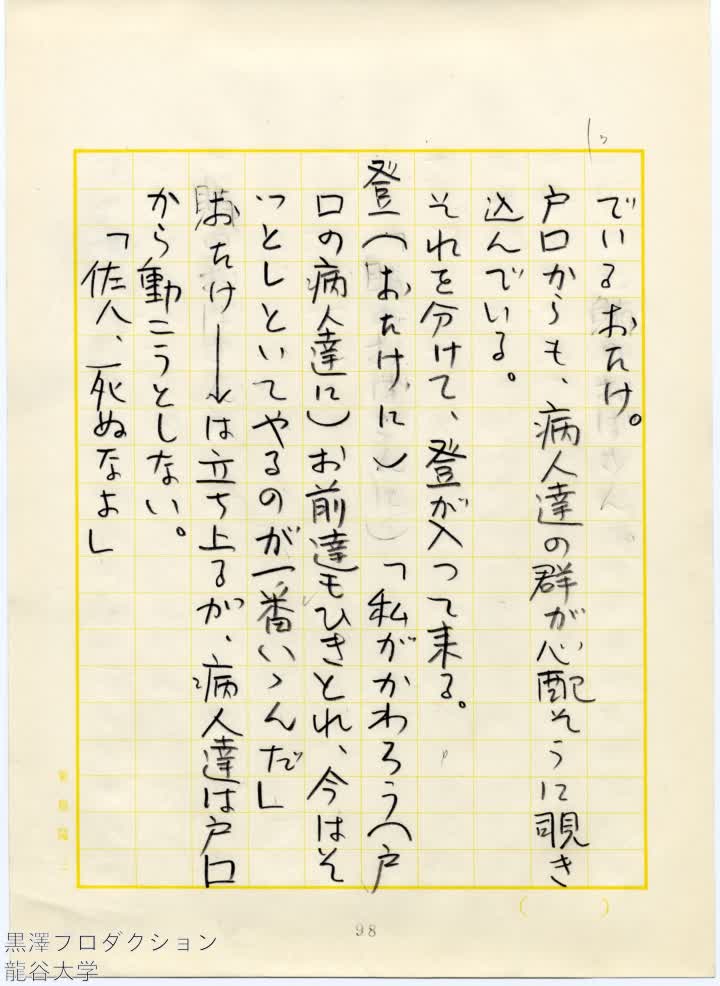 でいるおたけ。
戸口からも、病人達の群が心配そうに覗き
込んでいる。
それを分けて、登が入って来る。
登(おたけに)「私がかわろう(戸
口の病人達に)お前達もひきとれ、今はそ
っとしといてやるのが一番いゝんだ」
おたけ──は立ち上るが、病人達は戸口
から動こうとしない。
「佐八、死ぬなよ」
98
黒澤プロダクション
龍谷大学